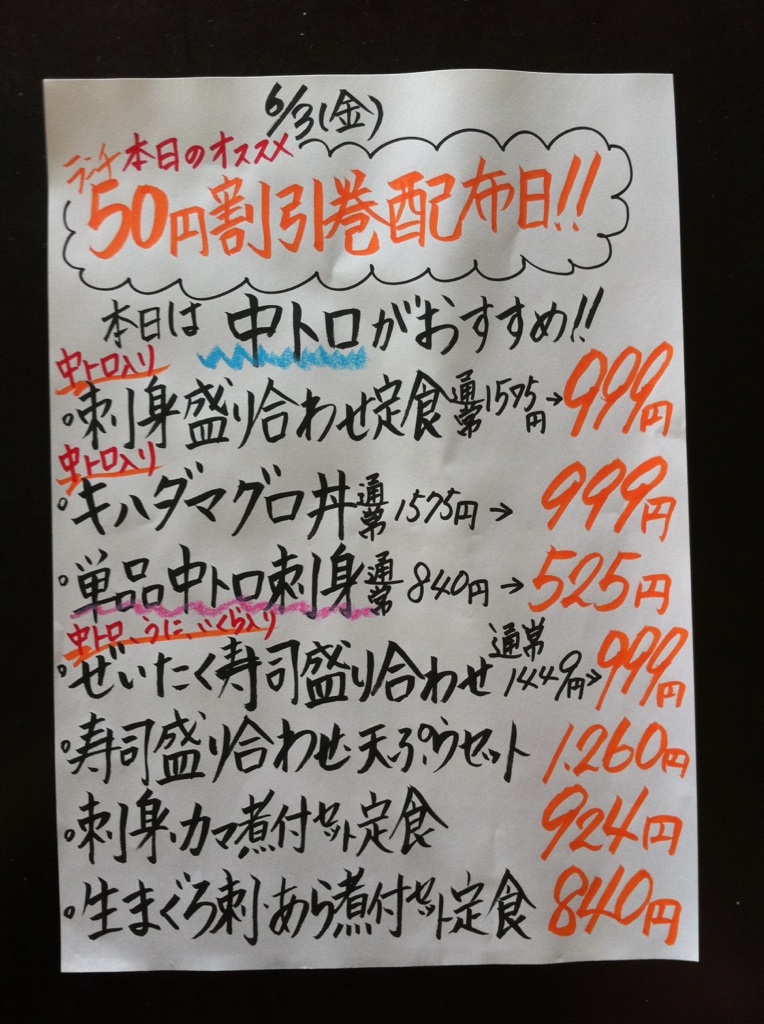 6/3(金)
ランチ本日のオススメ
50円割引巻配布日!!
本日は中トロがおすすめ!!
中トロ入り
。刺身盛り合わせ定食通常1575円→999円
中トロ入り
。キハダマグロ丼通常1575円→999円
。単品中トロ刺身通常840円→525円
中トロ、うに、いくら入り
。ぜいたく寿司盛り合わせ通常1449円→999円
。寿司盛り合わせ・天ぷらセット1.260円
。刺身、カマ煮付セット定食924円
。生まぐろ刺・あら煮付セット定食840円